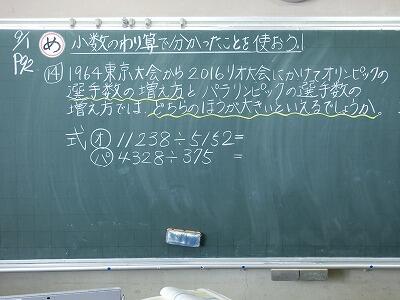 9/1
P82
め 小数のわり算で分かったことを使おう！
⑭ 1964東京大会から2016リオ大会にかけてオリンピックの
選手数の増え方とパラリンピックの選手数の
増え方では、どちらのほうが大きいといえるでしょうか。
式 オ 11238÷5152=
パ 4328÷375 =